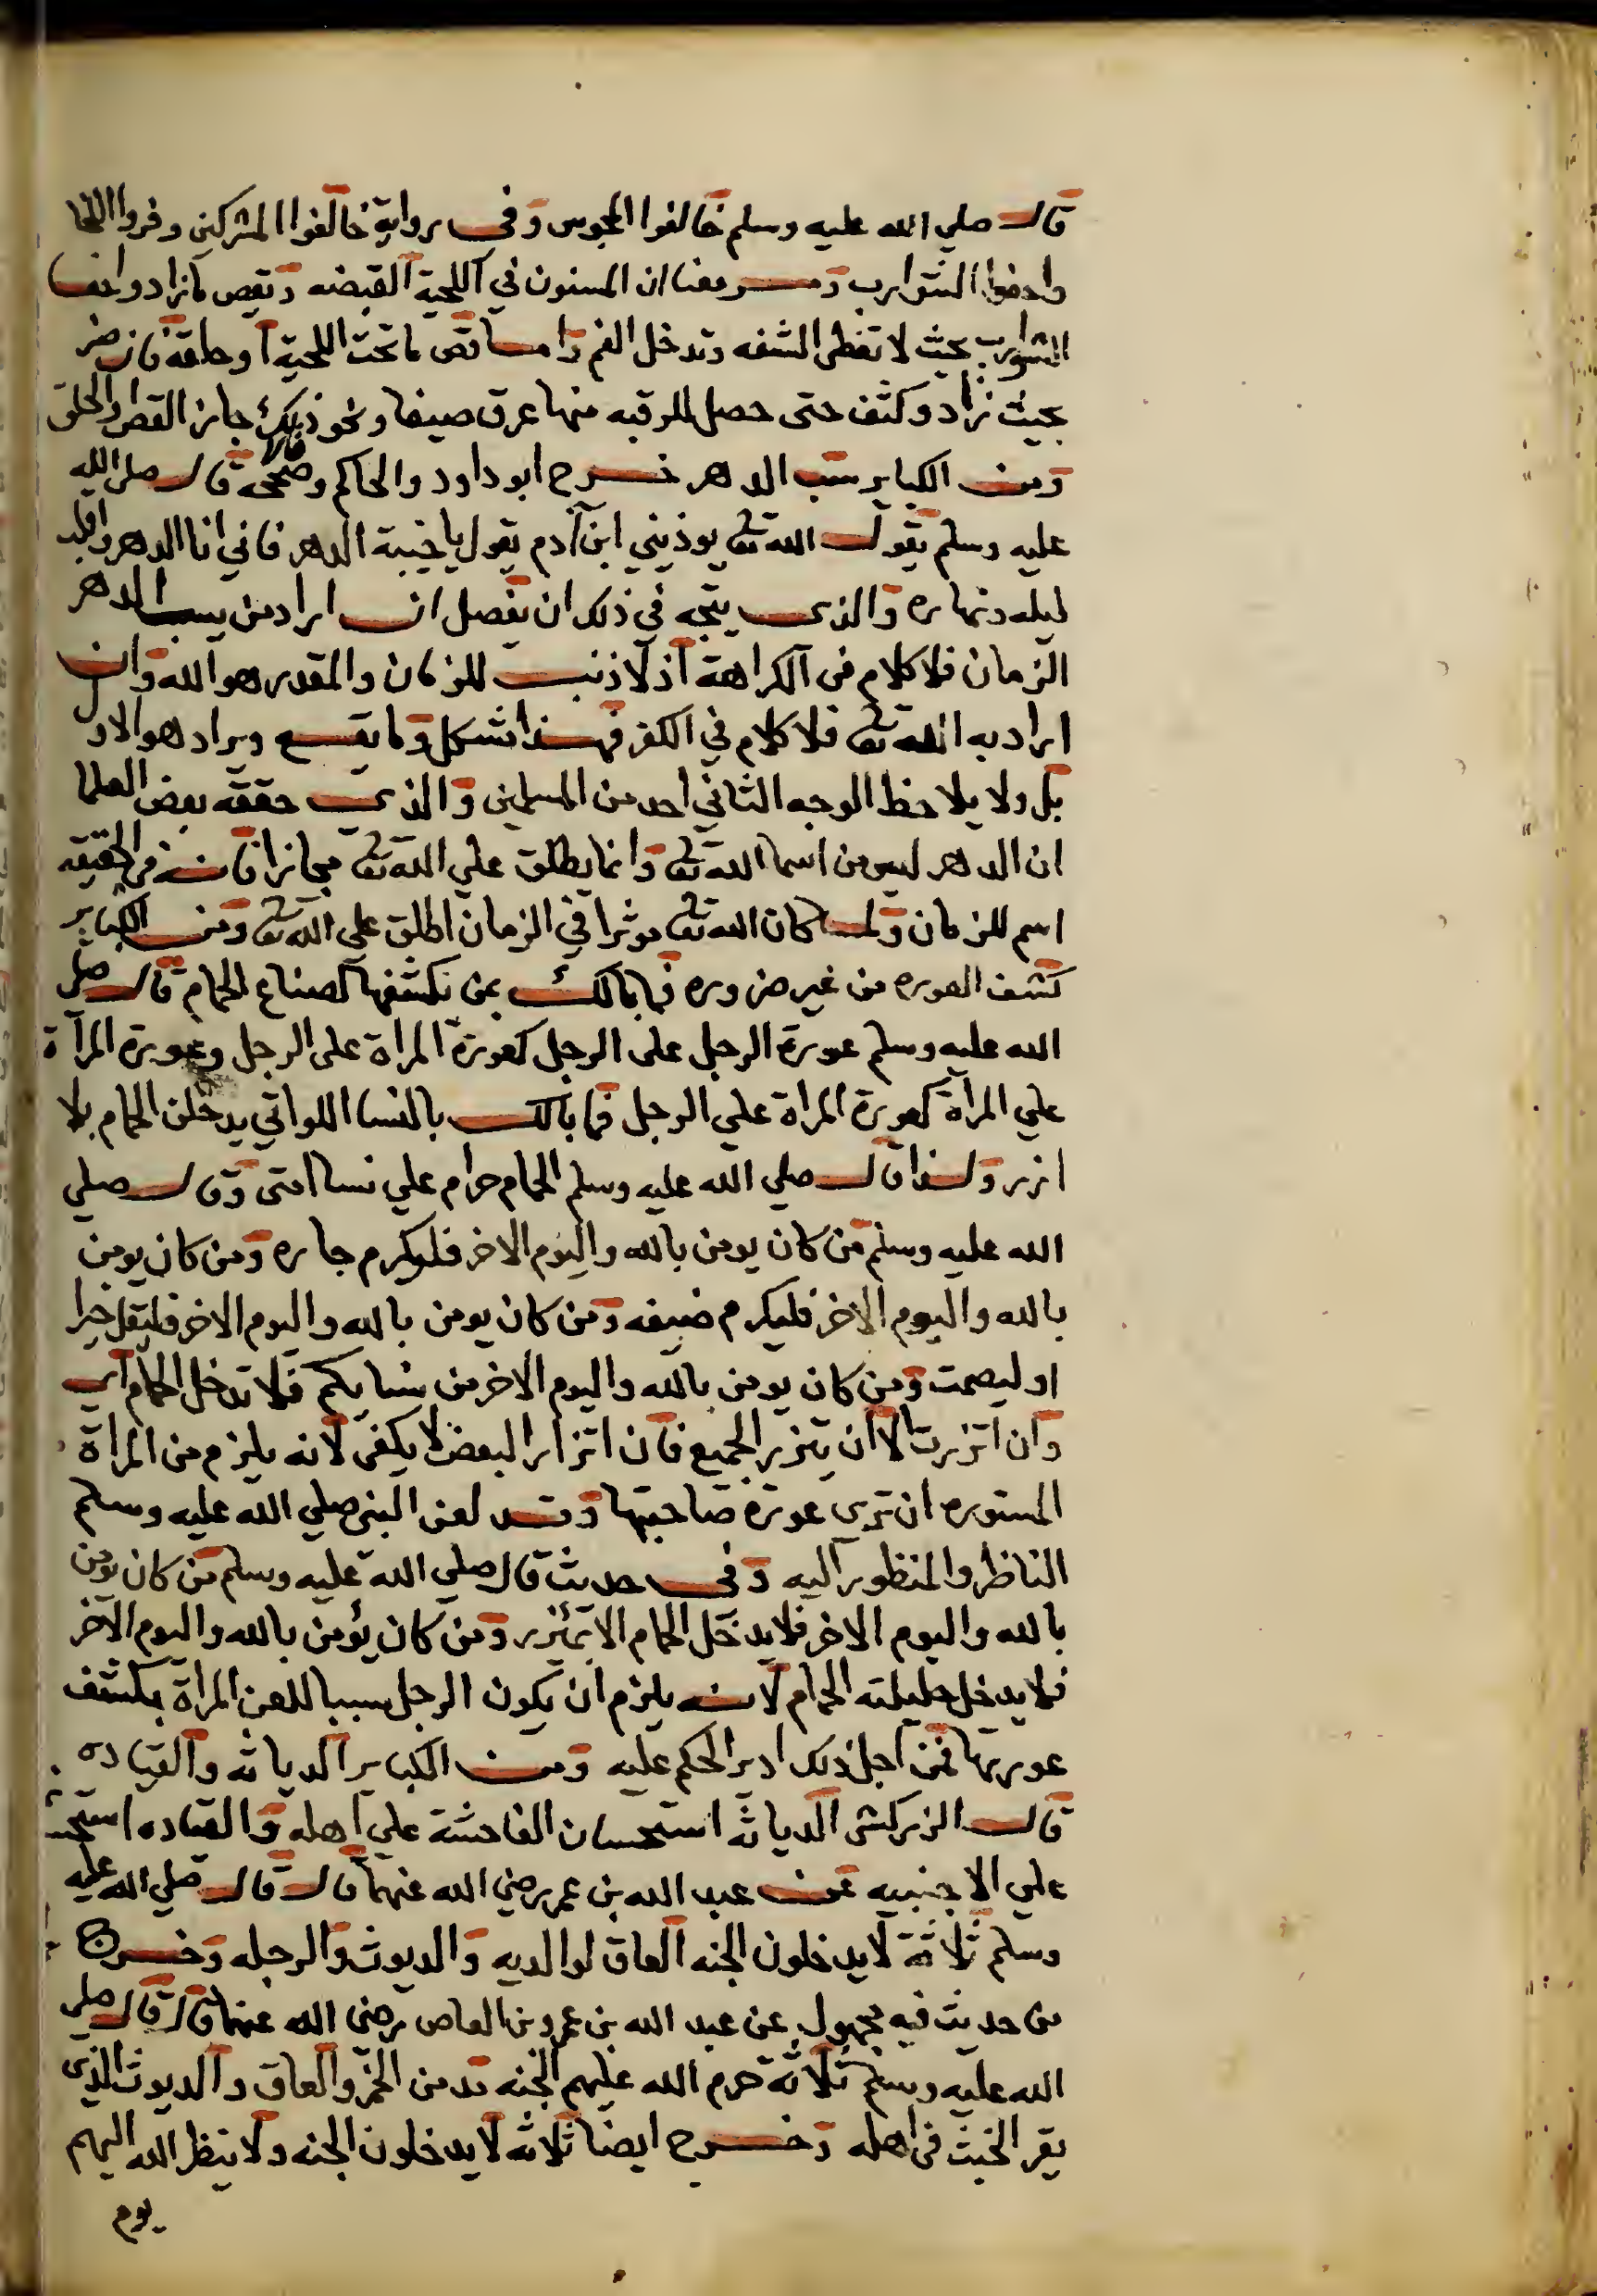 قال صلي الله عليه وسلم خالفوا المجوس وفي رواية خالفوا المشركين وفروا اللحا
واحفوا الشوارب ومر معنا ان المسنون في اللحية القبضه وتقص ما زاد واحفا
الشوارب بحيث لا تغطي الشفه وتدخل الفم واما قص ما تحت اللحية او حلقه فان ضر
بحيث زاد وكثف حتى حصل للرقبه منها عرق صيفا ونحو ذلك جاز القص والحلق
ومن الكباير سب الدهر خرج ابو داود والحاكم وصححه قالا قال صلى الله
عليه وسلم يقول الله تعالى يوذيني ابن آدم يقول يا خيبة الدهر فاني انا الدهر واقلب
ليله ونهاره والذي يتجه في ذلك ان نفصل ان اراد من يسب الدهر
الزمان فلا كلام في الكراهة اذ لا ذنب للزمان والمقدر هو الله وان
اراد به الله تعالى فلا كلام في الكفر فهذا شكل وما يقع ويراد هو الاول
بل ولا يلاحظ الوجه الثاني احد من المسلمين والذي حققه بعض العلما
ان الدهر ليس من اسما الله تعالى وانما يطلق علي الله تعالى مجازا فانه في الحقيقه
اسم للزمان ولما كان الله تعالى موثرا في الزمان اطلق علي الله تعالى ومن الكباير
كشف العوره من غير ضروره فما بالك بمن يكشفها لصناع الحمام قال صلى
الله عليه وسلم عورة الرجل على الرجل كعورة المراة على الرجل وعورة المرآة
علي المرأة كعورة المراة علي الرجل فما بالك بالنسا اللواتي يدخلن الحمام بلا
ازر ولذا قال صلي الله عليه وسلم الحمام حرام علي نسا امتى وقال صلي
الله عليه وسلم من كان يومن بالله واليوم الاخر فليكرم جاره ومن كان يومن
بالله واليوم الاخر فليكرم ضيفه ومن كان يومن بالله واليوم الاخر فليقل خيرا
او ليصمت ومن كان يومن بالله واليوم الاخر من نسايكم فلا تدخل الحمام اي
وان اتزرت الا ان يتزر الجميع فان اتزار البعض لا يكفي لانه يلزم من المراة
المستوره ان تري عورة صاحبتها وقد لعن النبي صلي الله عليه وسلم
الناظر والمنظور اليه وفي حديث قال صلي الله عليه وسلم من كان يومن
بالله واليوم الاخر فلا يدخل الحمام الا بمئزر ومن كان يؤمن بالله واليوم الآخر
فلا يدخل حليلته الحمام لانه يلزم ان يكون الرجل سببا للعن المراة بكشف
عورتها فمن اجل ذلك ادير الحكم عليه ومن الكباير الدياثه والقياده
قال الزركشي الدياثه استحسان الفاحشة علي اهله والقياده استحسانها
علي الاجنبيه عن عبد الله بن عمر رضي الله عنهما قال قال صلي الله عليه
وسلم ثلاثة لا يدخلون الجنه العاق لوالديه والديوث والرجله وخرج
من حديث فيه مجهول عن عبد الله بن عمرو بن العاص رضي الله عنهما قال قال صلى
الله عليه وسلم ثلاثة حرم الله عليهم الجنه مدمن الخمر والعاق والديوث الذي
يقر الخبث في اهله وخرج ايضا ثلاثه لا يدخلون الجنه ولا ينظر الله اليهم
يوم